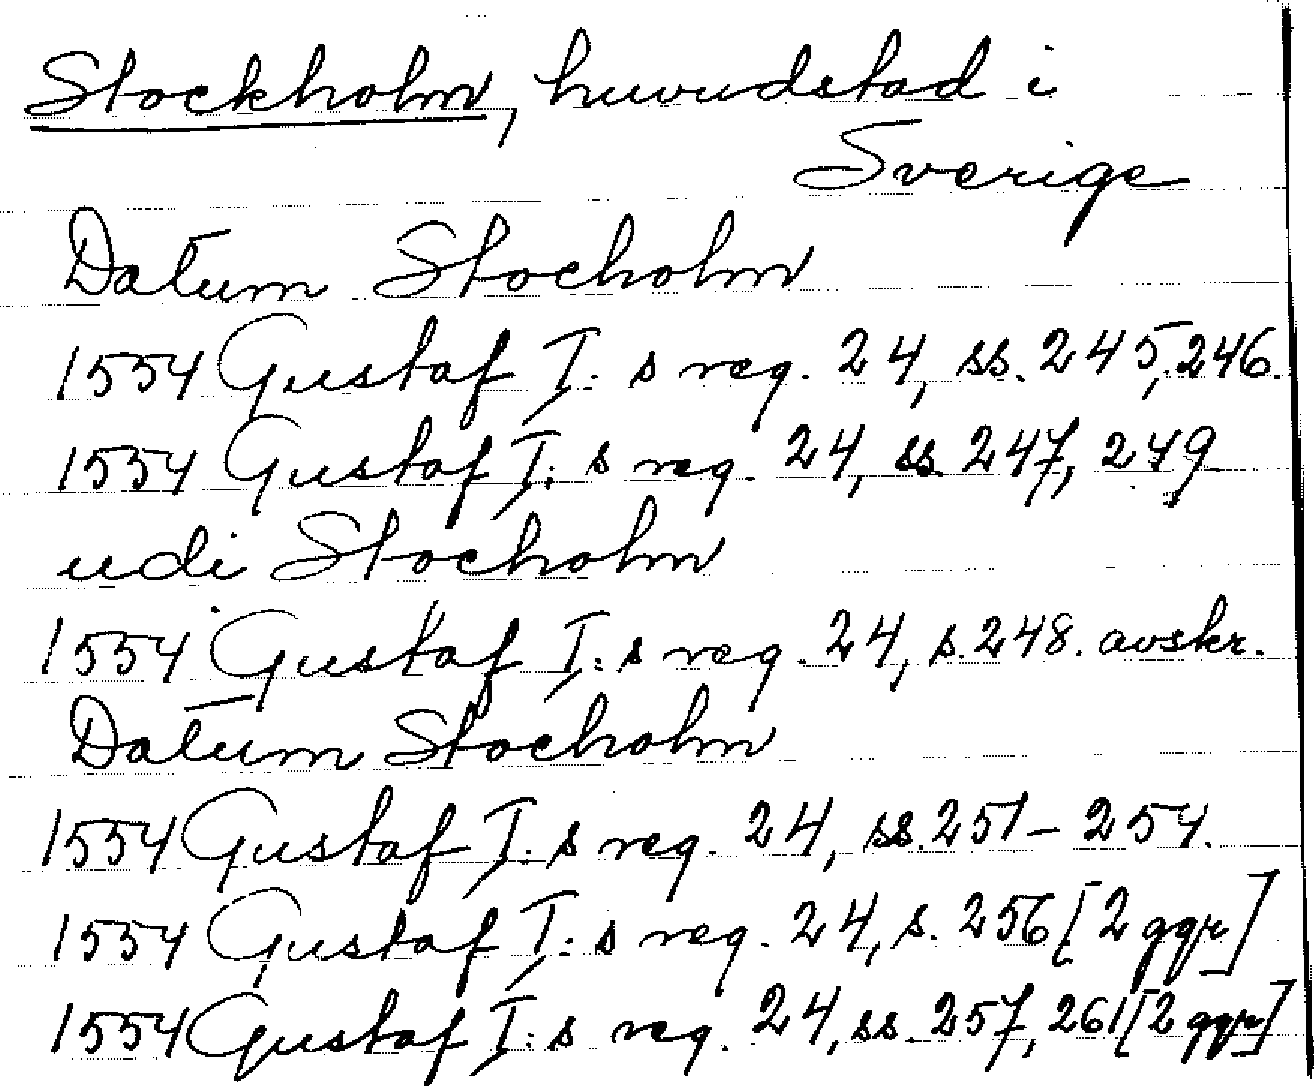 Stockholm, huvudstad i
Sverige
Datum Stocholm
1554 Gustaf I: s reg. 24, ss. 245, 246.
1554 Gustaf I: s reg. 24, ss. 247, 249
udi Stocholm
1554 Gustaf I: s reg. 24, s. 248. avskr.
Datum Stocholm
1554 Gustaf I: s reg. 24, ss. 251-254.
1554 Gustaf I: s reg. 24, s. 256 [2 ggr]
1554 Gustaf I: s reg. 24, ss. 257, 261 [2 ggr]